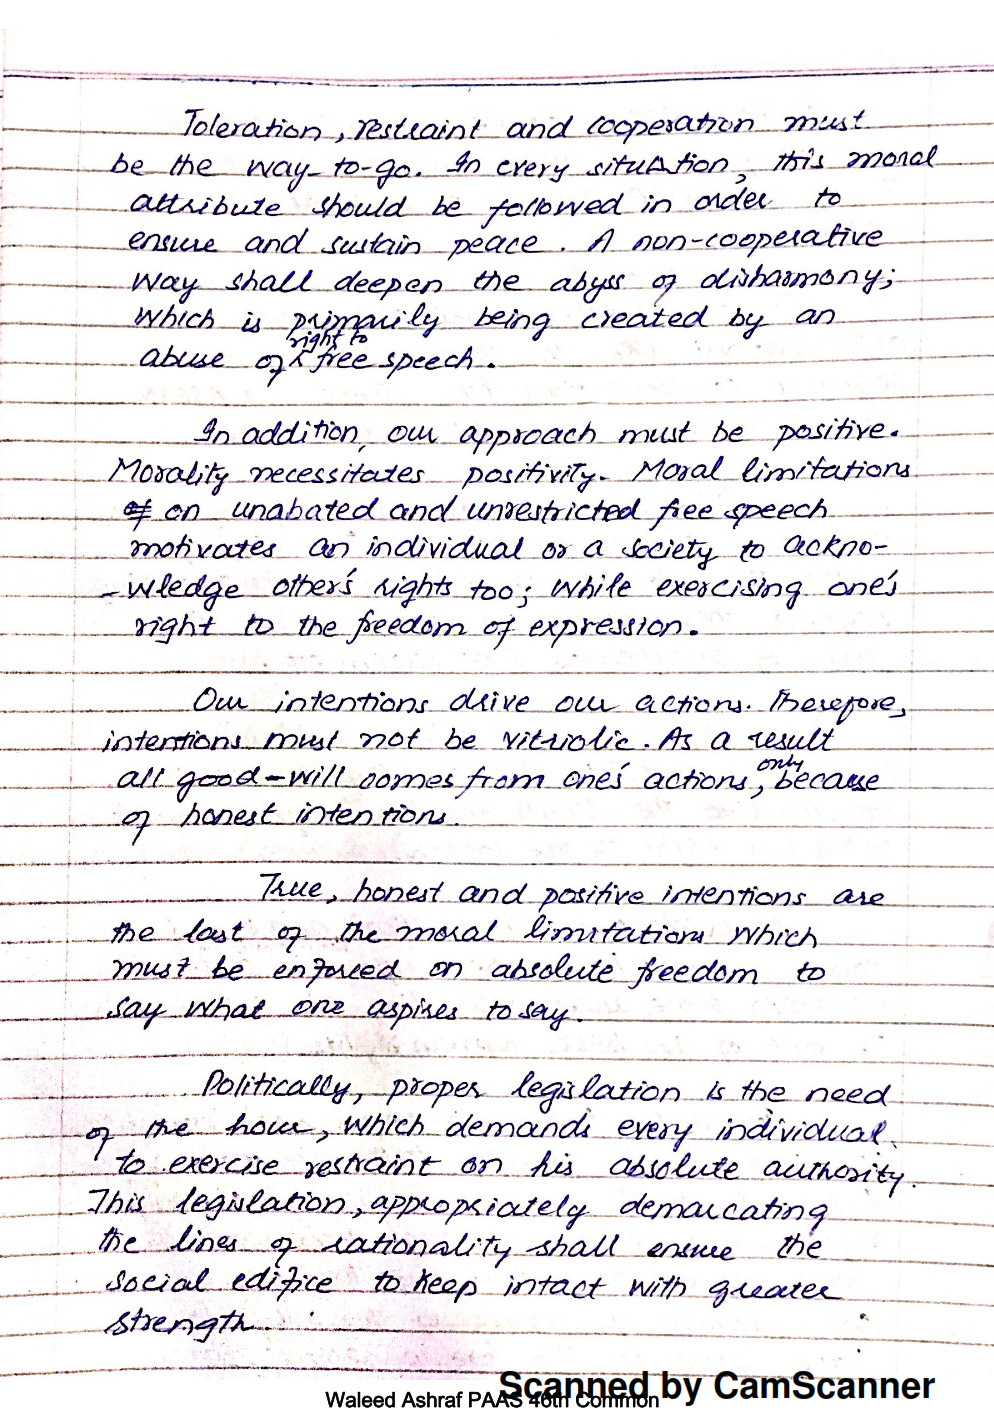 Toleration, restraint and cooperation must
be the way-to-go. In every situation, this moral
attribute should be followed in order to
ensure and sustain peace. A non-cooperative
way shall deepen the abyss of disharmony;
which is primarily being created by an
right to
abuse of free speech.
In addition, our approach must be positive.
Morality necessitates positivity. Moral limitations
on unabated and unrestricted free speech
motivates an individual or a society to ackno-
-wledge other's rights too; while exercising one's
right to the freedom of expression.
Our intentions drive our actions. Therefore,
intentions must not be vitriolic. As a result
only
all good-will comes from one's actions, because
of honest intentions.
True, honest and positive intentions are
the last of the moral limitations which
must be enforced on absolute freedom to
say what one aspires to say.
Politically, proper legislation is the need
of the hour, which demands every individual
to exercise restraint on his absolute authority.
This legislation, appropriately demarcating
the lines of rationality shall ensure the
social edifice to keep intact with greater
strength.
Scanned by CamScanner
Waleed Ashraf PAAS 46th Common